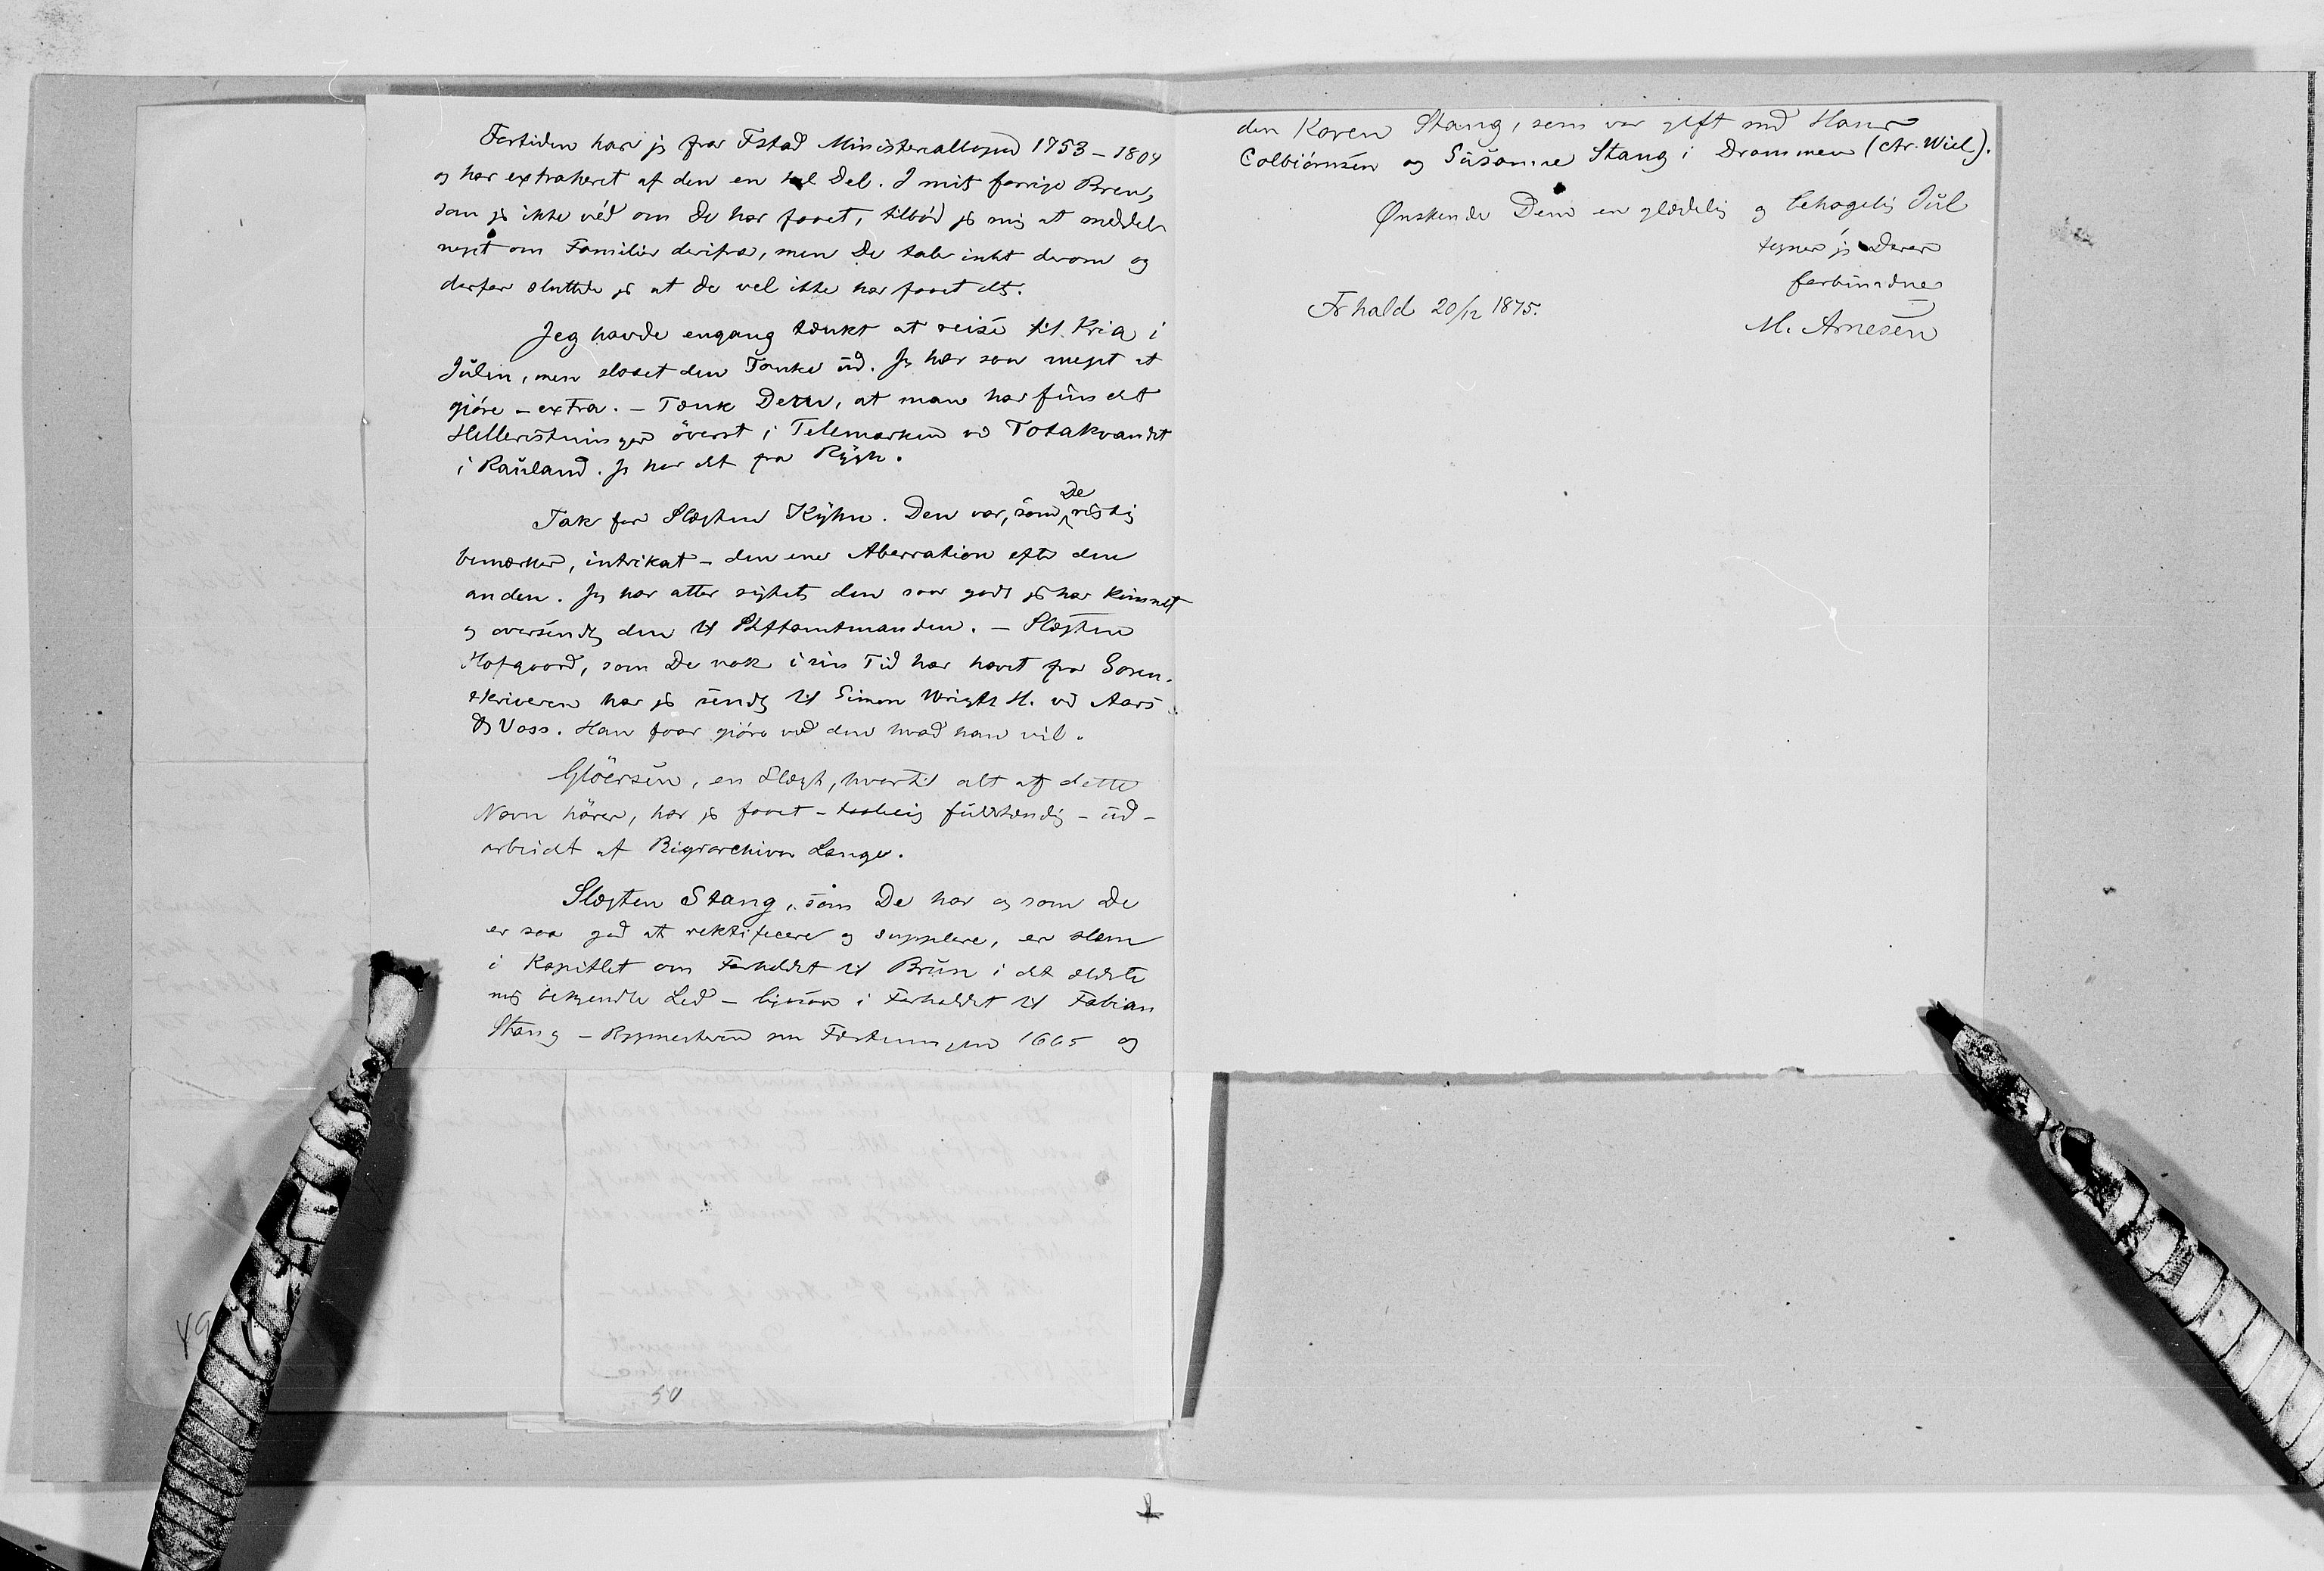 Fortiden har jeg fra Fstad Ministerialbogen 1753 – 1804
og har extraheret af den en hel Del. I mit forrige Brev,
som jeg ikke véd om De har faaet, tilbód jeg mig at meddele
noget om Familier derifra, men De taler intet derom og
derfor sluttede jeg at De vel ikke har faaet det.
Jeg havde engang tænkt at reise til Kria i
Julen, men slaaet den Tanke ud. Jeg har saa meget at
gjöre – extra. – Tænk Dem, at man har fundet
Helleristninger överst i Telemarken ved Totakvandet
i Rauland. Jeg har det fra Rygh.
Tak for Slægten Kÿhn. Den var, som De rigtig
bemærker, intrikat – den ene Aberration efter den
anden. Jeg har atter rigtet den saa godt jeg har kunnet
og oversendt den til Stiftamtmanden. – Slægten
Hofgaard, som De nok i sin Tid har havt fra Soren-
skriveren har jeg sendt til Simon Wright H. ved Aars
& Voss. Han faar gjöre ved den hvad han vil.
Glöersen, en Slægt, hvortil alt af dette
Navn hörer, har jeg faaet – fuldstændig – ud-
arbeidet af Rigsarchivar Lange.
Slægten Stang, som De har og som De
er saa god at rektificere og supplere, er slem
i Kapitlet om Forholdet til Brun i det ældste
mig bekjendte Led – ligesom i Forholdet til Fabian
Stang – Bygmesteren om Fæstningen 1665 og
den Karen Stang, som var gift med Hans
Colbiörnsen og Susanne Stang i Drammen (cfr. Wiel).
Önskende Dem en glædelig og behagelig Jul
tegner jeg Deres
forbundne
Fr hald 20/12 1875.
M. Arnesen
49
50